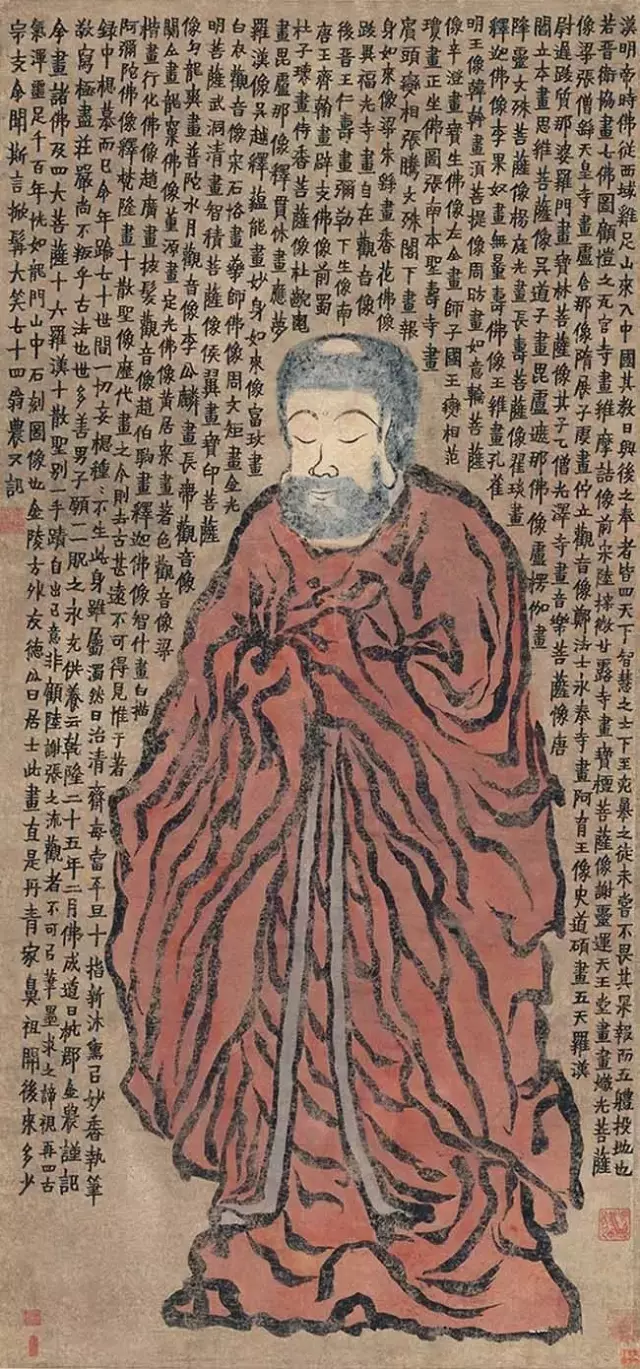 漢明帝時佛從西域雞足山來入中國其教日興後之奉者皆四天下智慧之士下至兇暴之徒未嘗不畏其果報而五體投地也
若晉衛協畫七佛圖顧愷之瓦官寺畫維摩詰像前宋陸探微甘露寺畫寶檀菩薩像謝靈運天王堂畫畫熾光菩薩
像梁張僧繇天皇寺畫盧舍那像隋展子虔畫佇立觀音像鄭法士永泰寺畫阿育王像史道碩畫五天羅漢
尉遲跋質那婆羅門畫寶林菩薩像其子乙僧光澤寺畫音樂菩薩像唐
閻立本畫思維菩薩像吳道子畫毘盧遮那佛像盧楞伽畫
降靈文殊菩薩像楊庭光畫長壽菩薩像翟琰畫
釋迦佛像李果奴畫無量壽佛像王維畫孔雀
明王像韓幹畫須菩提像周昉畫如意輪菩薩
像辛澄畫寶生佛像左全畫師子國王變相范
瓊畫正坐佛圖張南本聖壽寺畫
賓頭變相張騰文殊閣下畫報
身如來像梁朱繇畫香花佛像
跋異福光寺畫自在觀音像
後晉王仁壽畫彌勒下生像南
唐王齊翰畫辟支佛像前蜀
杜子瓌畫侍香菩薩像杜齯龜
畫毘盧那像釋貫休畫應夢
羅漢像吳越釋蘊能畫妙身如來像富玫畫
白衣觀音像宋石恪畫藥師佛像周文矩畫金光
明菩薩武洞清畫智積菩薩像侯翼畫寶印菩薩
像勾龍爽畫普陀水月觀音像李公麟畫長帶觀音像
關仝畫龍窠佛像董源畫定光佛像黃居寀畫著色觀音像梁
楷畫行化佛像趙廣畫披髮觀音像趙伯駒畫釋迦佛像智什畫白描
阿彌陀佛像釋梵隆畫十散聖像歷代畫之今則去古甚遠不可得見惟于著
録中想慕而已今年踰七十世間一切妄想種〻不生此身雖屬濁然日治清齋每當平旦十指新沐熏以妙香執筆
敬寫極盡莊嚴尚不叛乎古法也世多善男子願一一貺之永充供養云乾隆二十五年二月佛成道日杭郡金農謹記
今畫諸佛及四大菩薩十六羅漢十散聖別一手蹟自出己意非顧陸謝張之流觀者不可以筆墨求之諦視再四古
氣渾噩足千百年恍如龍門山中石刻圖像也金陵方外友德公曰居士此畫直是丹青家鼻祖開後來多少
宗支余聞斯言掀髯大笑七十四翁農又記